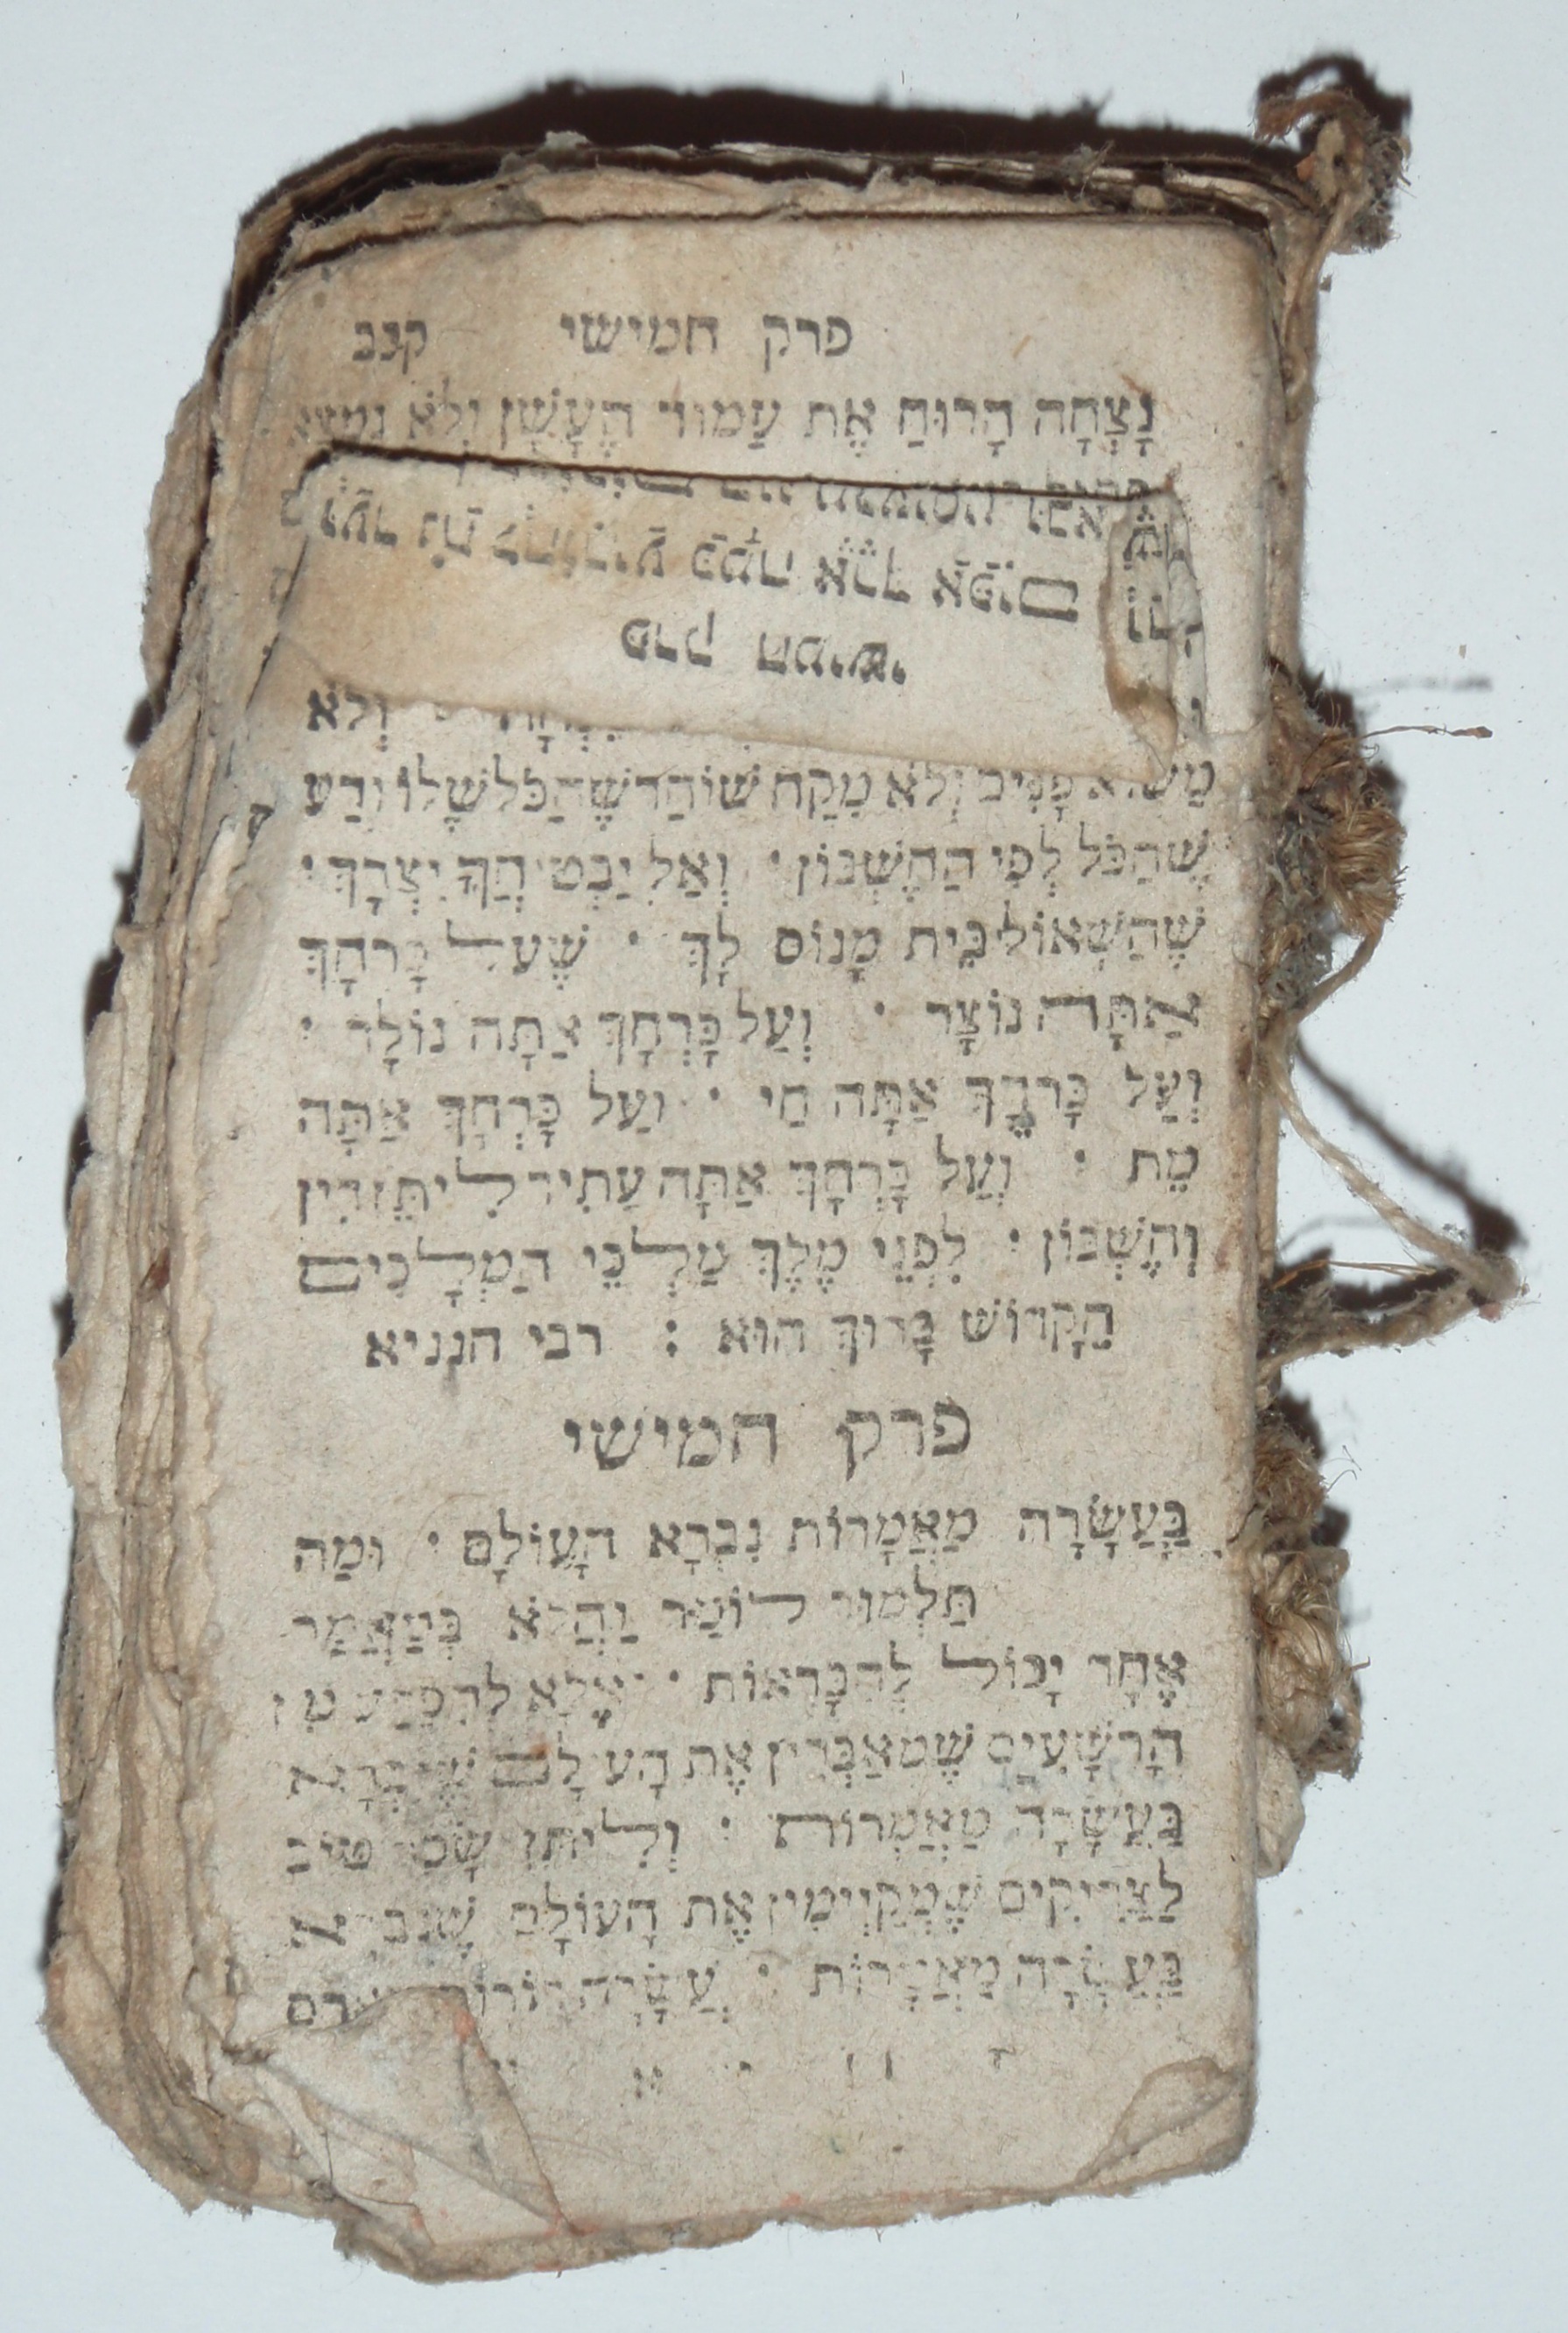 פרק חמישי קנב
נָצְחָה הָרוּחַ אֶת עַמוּד הֶעָשָׁן וְלֹא
כַּמָּה אֶרֶךְ אַפַּיִם
פרק חמישי
וְלֹא
פָנִים וְלֹא מִקַח שׁוֹחַד שֶׁהַכֹּל שֶׁלּוֹ וְדַע
שֶׁהַכֹּל לְפִי הַחֶשְׁבּוֹן · וְאַל יַבְטִחֲךָ יִצְרָךְ ·
שֶׁהַשְּׁאוֹל בֵּית מָנוֹס לָךְ · שֶׁעַל כָּרְחָךְ
אַתָּה נוֹצָר · וְעַל כָּרְחָךְ אַתָּה נוֹלָד ·
וְעַל כָּרְחָךְ אַתָּה חַי · וְעַל כָּרְחָךְ אַתָּה
מֵת · וְעַל כָּרְחָךְ אַתָּה עָתִיד לִיתֵּן דִּין
וְחֶשְׁבּוֹן · לִפְנֵי מֶלֶךְ מַלְכֵי הַמְּלָכִים
הַקָּדוֹשׁ בָּרוּךְ הוּא : רבי חנניא
פרק חמישי
בַּעֲשָׂרָה מַאֲמָרוֹת נִבְרָא הָעוֹלָם · וּמַה
תַּלְמוּד לוֹמַר וַהֲלֹא בְּמַאֲמַר
אֶחָד יָכוֹל לְהִבָּרְאוֹת · אֶלָּא לְהִפָּרַע
הָרְשָׁעִים שֶׁמְאַבְּדִין אֶת הָעוֹלָם שֶׁנִּבְרָא
בַּעֲשָׂרָה מַאֲמָרוֹת · וְלִיתֵּן שָׂכָר טוֹב
לַצַּדִּיקִים שֶׁמְּקַיְּימִין אֶת הָעוֹלָם שֶׁנִּבְרָא
בַּעֲשָׂרָה מַאֲמָרוֹת · עֲשָׂרָה דוֹרוֹת